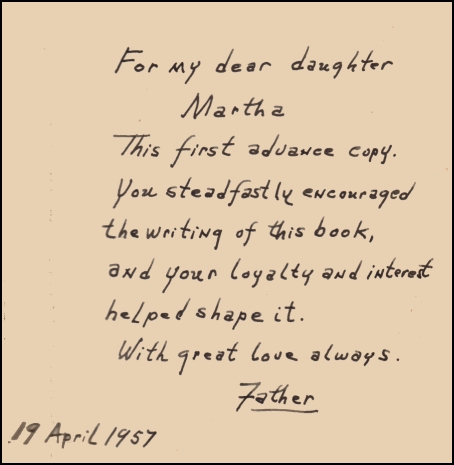 For my dear daughter
Martha
This first advance copy.
You steadfastly encouraged
the writing of this book,
and your loyalty and interest
helped shape it.
With great love always.
Father
19 April 1957